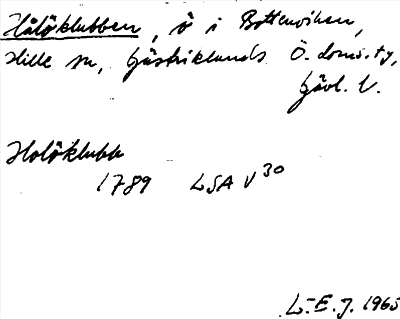 Hålöklubben, ö i Bottenviken,
Hille sn, Gästriklands Ö. doms. ty,
Gävl. l.
Holöklubb
1789 LSA V 30
L-E. J. 1965